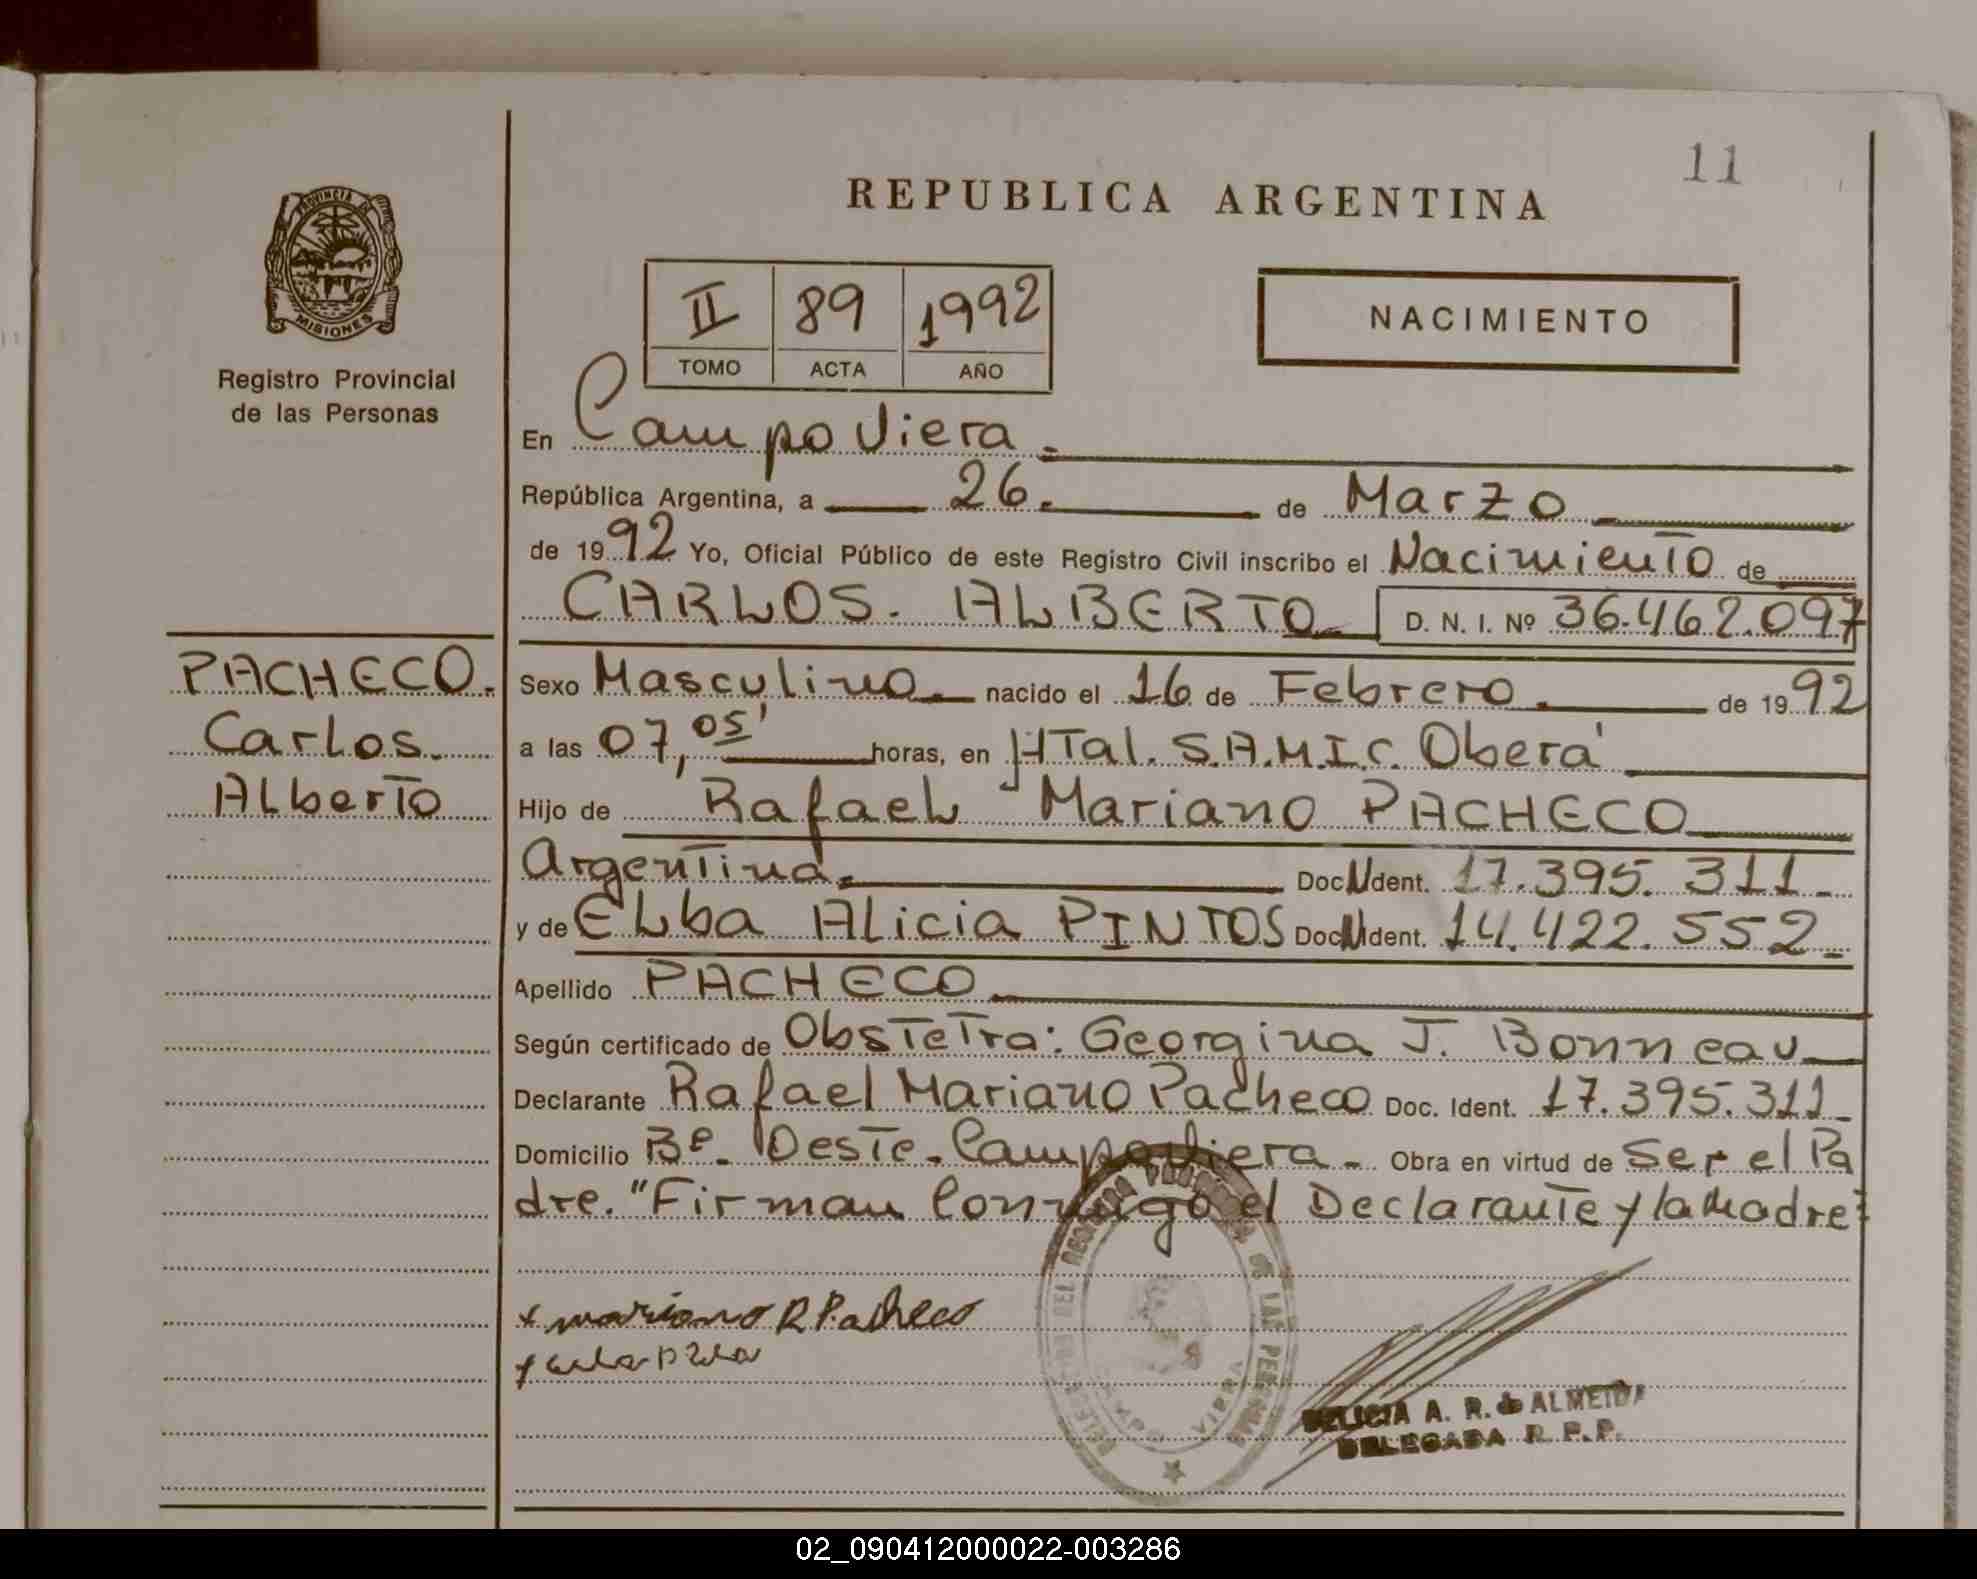 11
REPUBLICA ARGENTINA
PROVINCIA DE
MISIONES
Registro Provincial
de las Personas
II 89 1992
TOMO ACTA AÑO
NACIMIENTO
En Campo Viera
República Argentina, a 26. de Marzo
de 1992 Yo, Oficial Público de este Registro Civil inscribo el Nacimiento de
CARLOS. ALBERTO D. N. I. Nº 36.462.097
PACHECO.
Carlos.
Alberto
Sexo Masculino nacido el 16 de Febrero de 1992
a las 07,05' horas, en HTal. S.A.M.I.C. Oberá
Hijo de Rafael Mariano PACHECO
Argentina. Doc. Ident. 17.395.311
y de Elba Alicia PINTOS Doc. Ident. 14.422.552
Apellido PACHECO
Según certificado de Obstetra: Georgina J. Bonneau
Declarante Rafael Mariano Pacheco Doc. Ident. 17.395.311
Domicilio Bº. Oeste. Campo Viera. Obra en virtud de Ser el Pa
dre. "Firman Conmigo el Declarante y la Madre"
x mariano R Pacheco
DEL REGISTRO PROVINCIAL DE LAS PERSONAS
CAMPO VIERA
DELICIA A. R. de ALMEIDA
DELEGADA R. P. P.
02_090412000022-003286